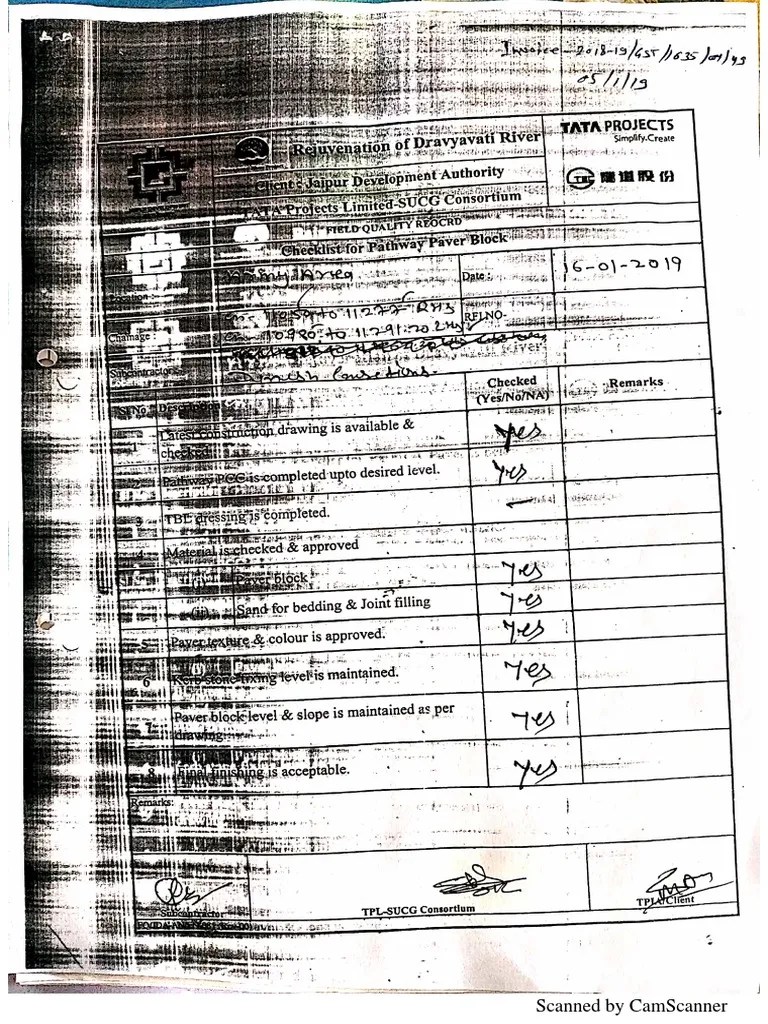 Invoice - 2018-19/GST/1635/01/43
05/1/19
Rejuvenation of Dravyavati River
TATA PROJECTS
Simplify.Create
Client : Jaipur Development Authority
隧道股份
TATA Projects Limited-SUCG Consortium
FIELD QUALITY REOCRD
Checklist for Pathway Paver Block
Location :
Date :
16-01-2019
Chainage :
to 11272 RHS
RFI.NO-
10980 to 11291.20 LHS
Subcontractor
Description
Checked
(Yes/No/NA)
Remarks
1 Latest construction drawing is available & checked. Yes
2 Pathway PCC is completed upto desired level. Yes
3 TBL dressing is completed. —
4 Material is checked & approved
(i) Paver block Yes
(ii) Sand for bedding & Joint filling Yes
5 Paver texture & colour is approved. Yes
6 Kerb stone fixing level is maintained. Yes
7 Paver block level & slope is maintained as per drawing. Yes
8 Final finishing is acceptable. Yes
Remarks:
Subcontractor
TPL-SUCG Consortium
TPIA/Client
Scanned by CamScanner